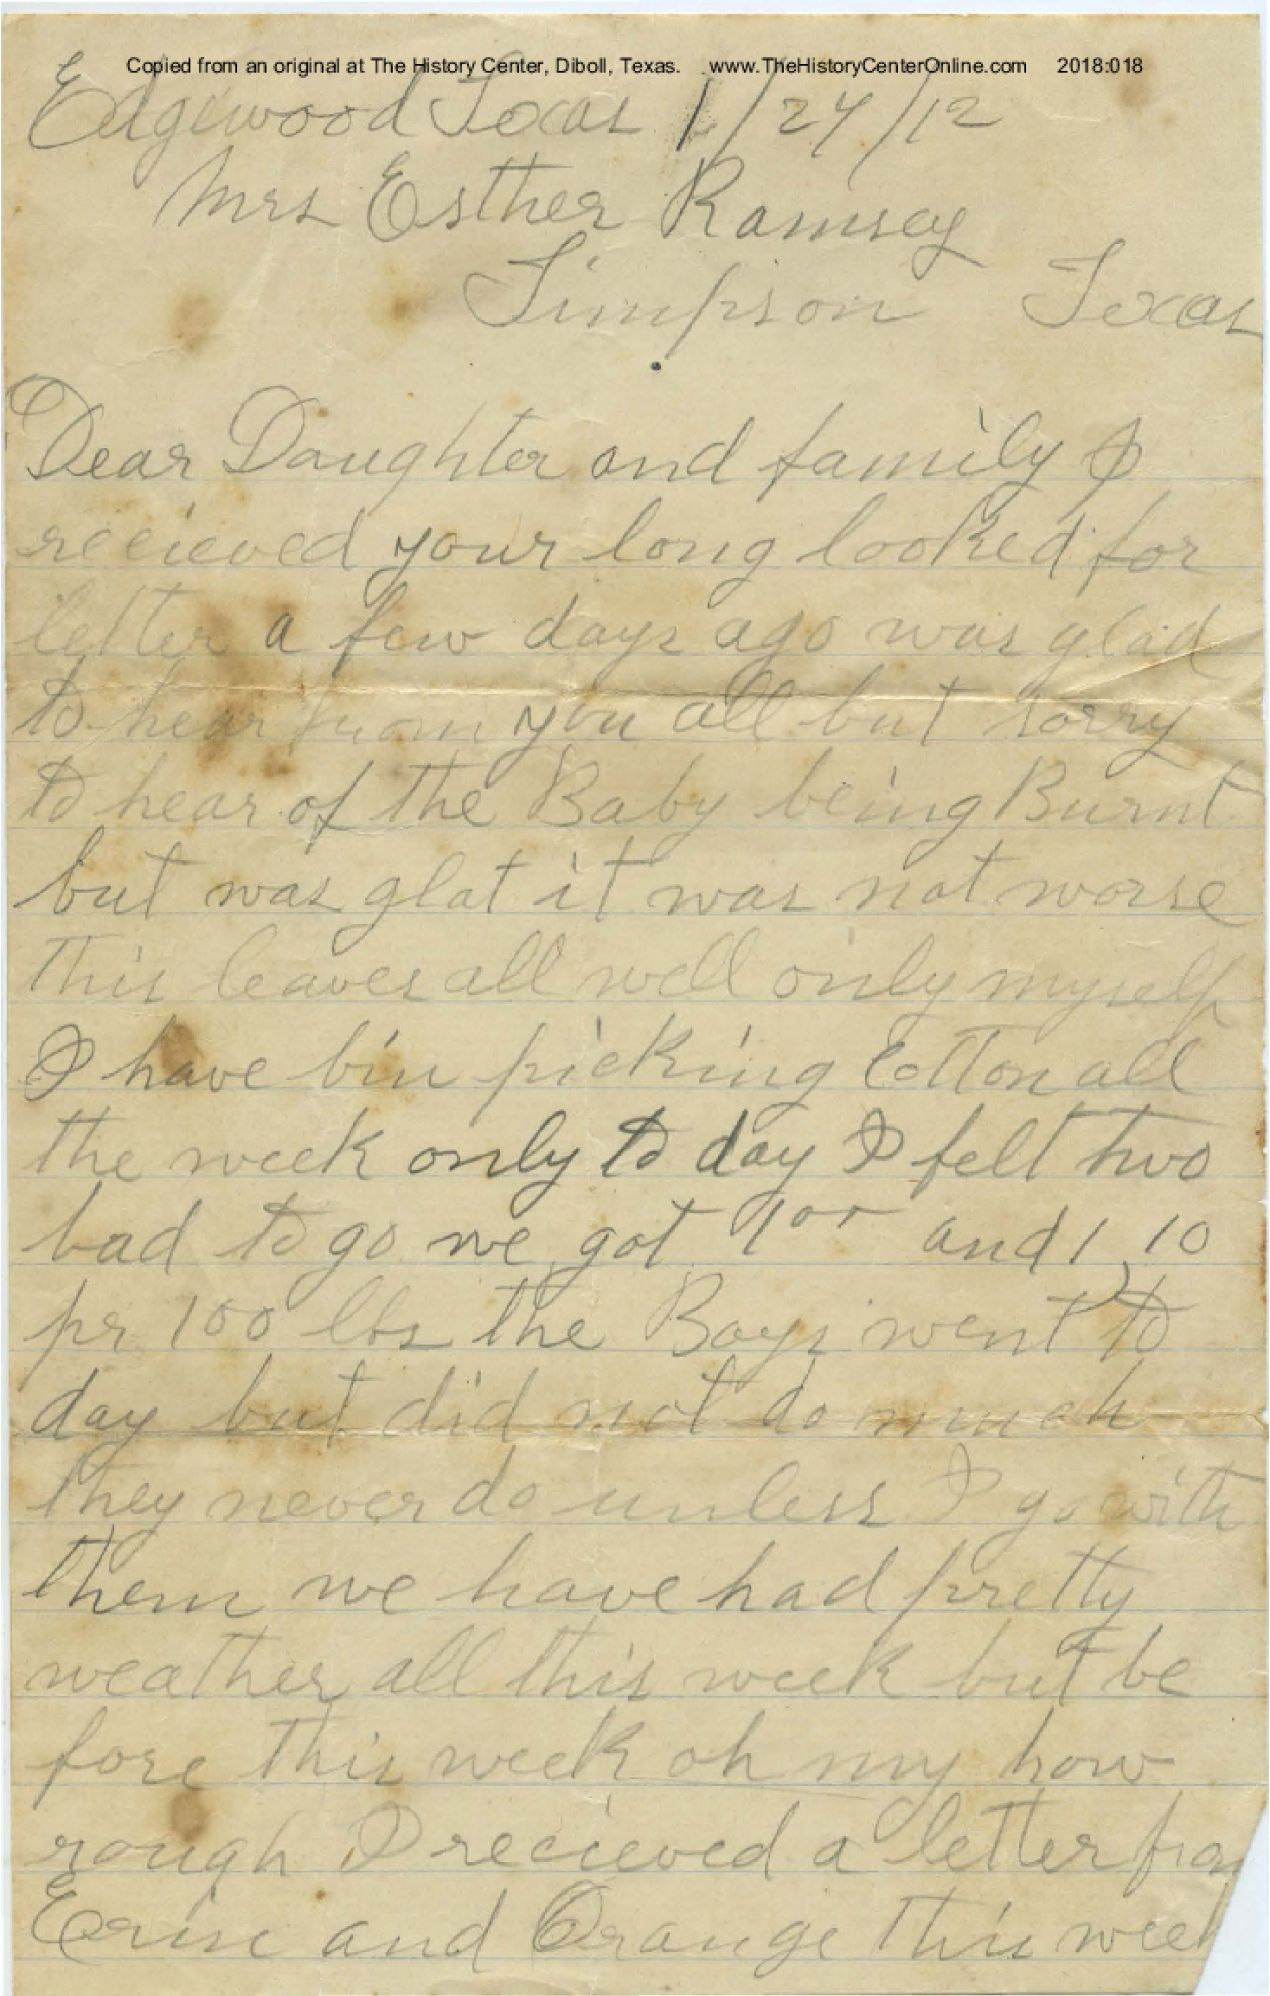 Copied from an original at The History Center, Diboll, Texas. www.TheHistoryCenterOnline.com 2018:018
Edgewood Texas 1/24/12
Mrs Esther Ramsey
Timpson Texas
Dear Daughter and family I
recieved your long looked for
letter a few days ago was glad
to hear from you all but sorry
to hear of the Baby being Burnt
but was glat it was not worse
this leaves all well only myself
I have bin picking Cotton all
the week only to day I felt two
bad to go we got 1 00 and 1,10
pr 100 lbs the Boys went to
day but did not do much
they never do unless I go with
them we have had pretty
weather all this week but be
fore this week oh my how
rough I recieved a letter
and Orange this week